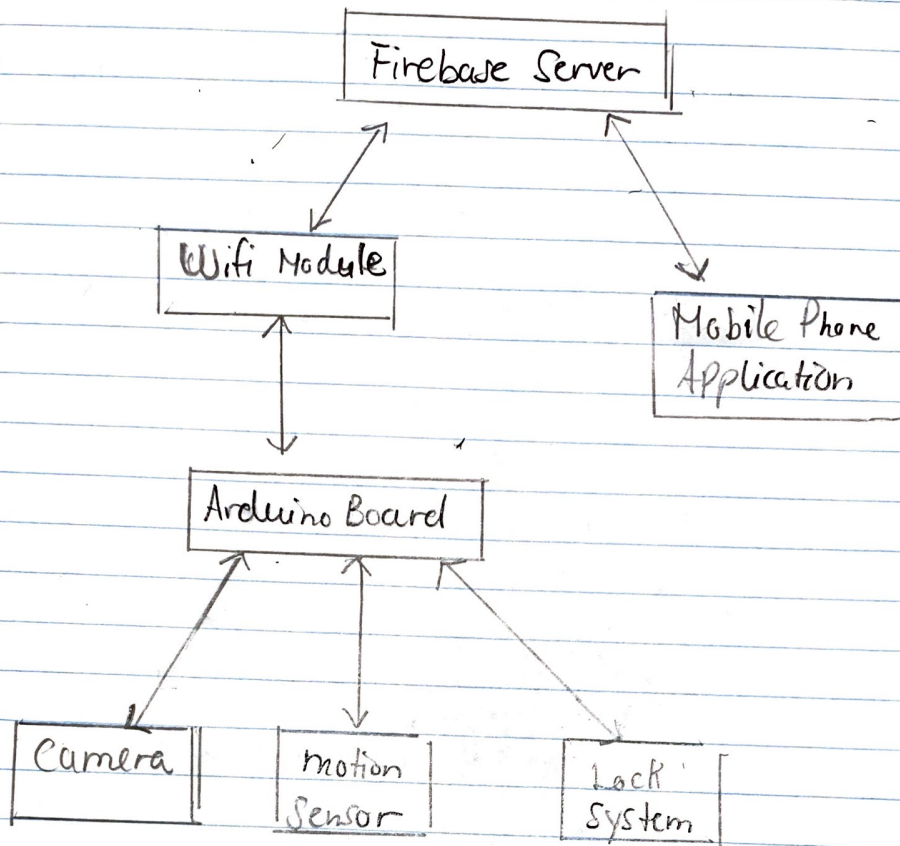 Firebase Server
Wifi Module
Mobile Phone
Application
Arduino Board
Camera
motion
Sensor
Lock
System